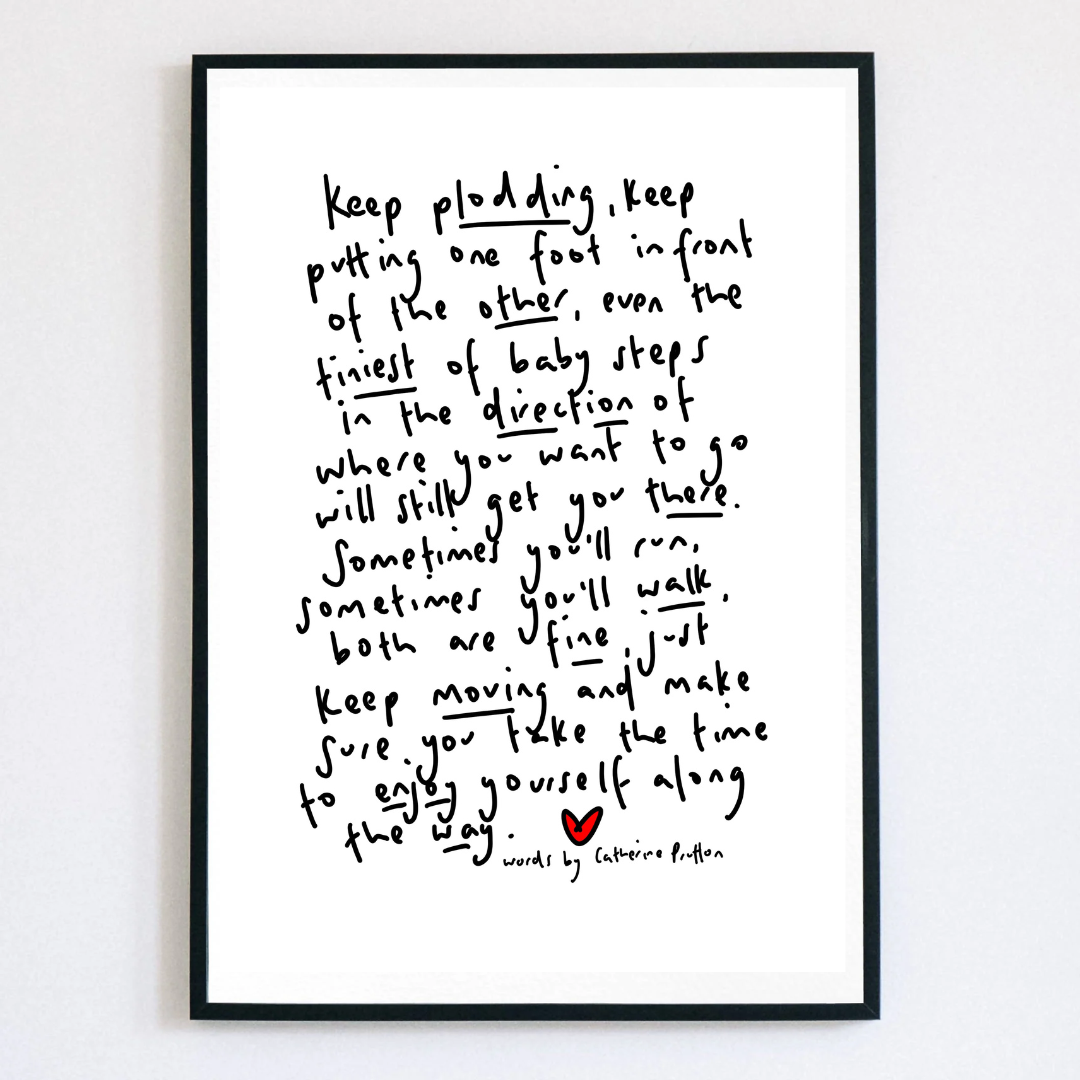 Keep plodding, keep
putting one foot in front
of the other, even the
tiniest of baby steps
in the direction of
where you want to go
will still get you there.
Sometimes you'll run,
sometimes you'll walk,
both are fine, just
keep moving and make
sure you take the time
to enjoy yourself along
the way.
words by Catherine Prutton